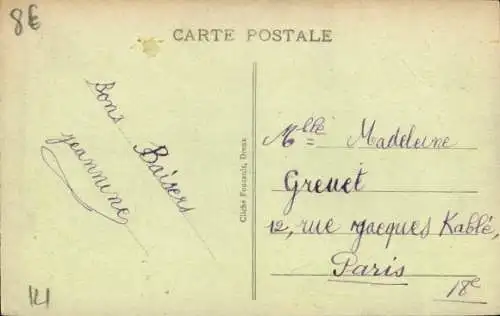 8€
CARTE POSTALE
Bons Baisers
Jeannine
Cliché Foucault, Dreux
Mlle Madeleine
Grenet
12, rue Jacques Kablé,
Paris
18e